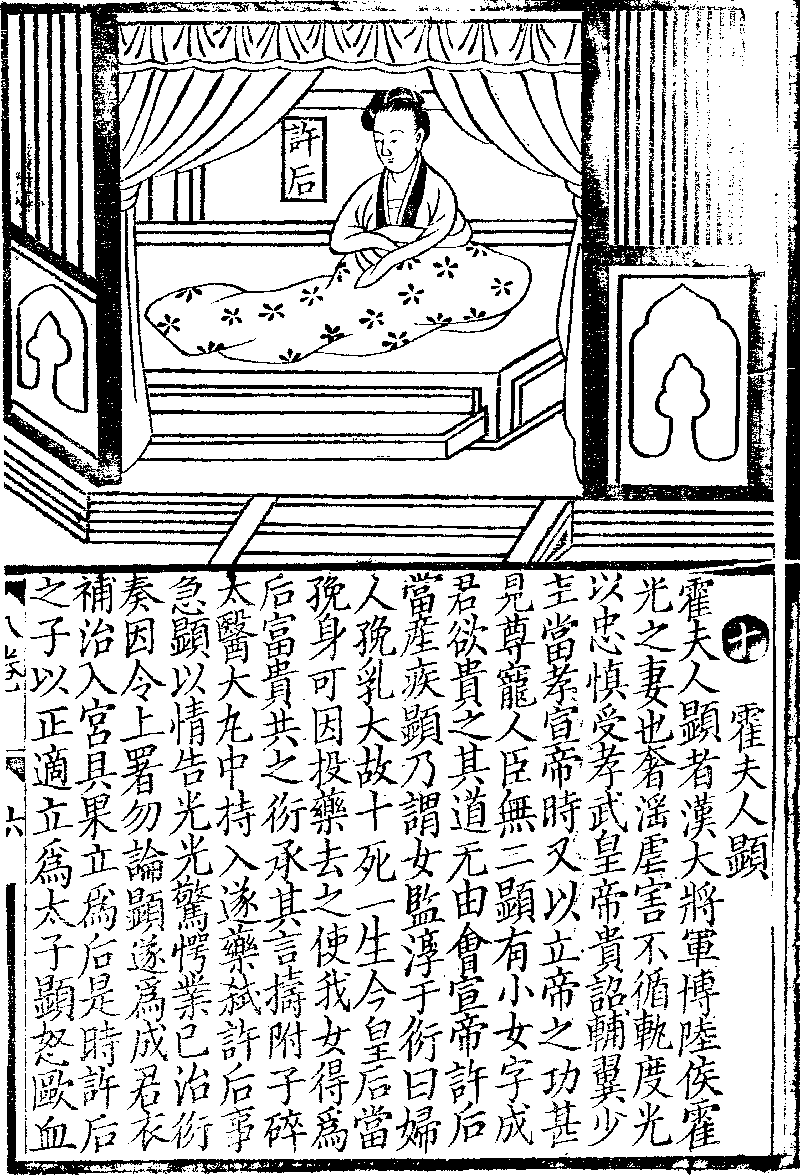 許后
十
霍夫人顯
霍夫人顯者漢大將軍博陸侯霍
光之妻也奢淫虐害不循軌度光
以忠慎受孝武皇帝貴詔輔翼少
主當孝宣帝時又以立帝之功甚
見尊寵人臣無二顯有小女字成
君欲貴之其道无由會宣帝許后
當產疾顯乃謂女監淳于衍曰婦
人㝃乳大故十死一生今皇后當
㝃身可因投藥去之使我女得為
后富貴共之衍承其言擣附子碎
太醫大丸中持入遂藥弑許后事
急顯以情告光光驚愕業已治衍
奏因令上署勿論顯遂為成君衣
補治入宮具果立為后是時許后
之子以正適立為太子顯怒歐血
八卷
六